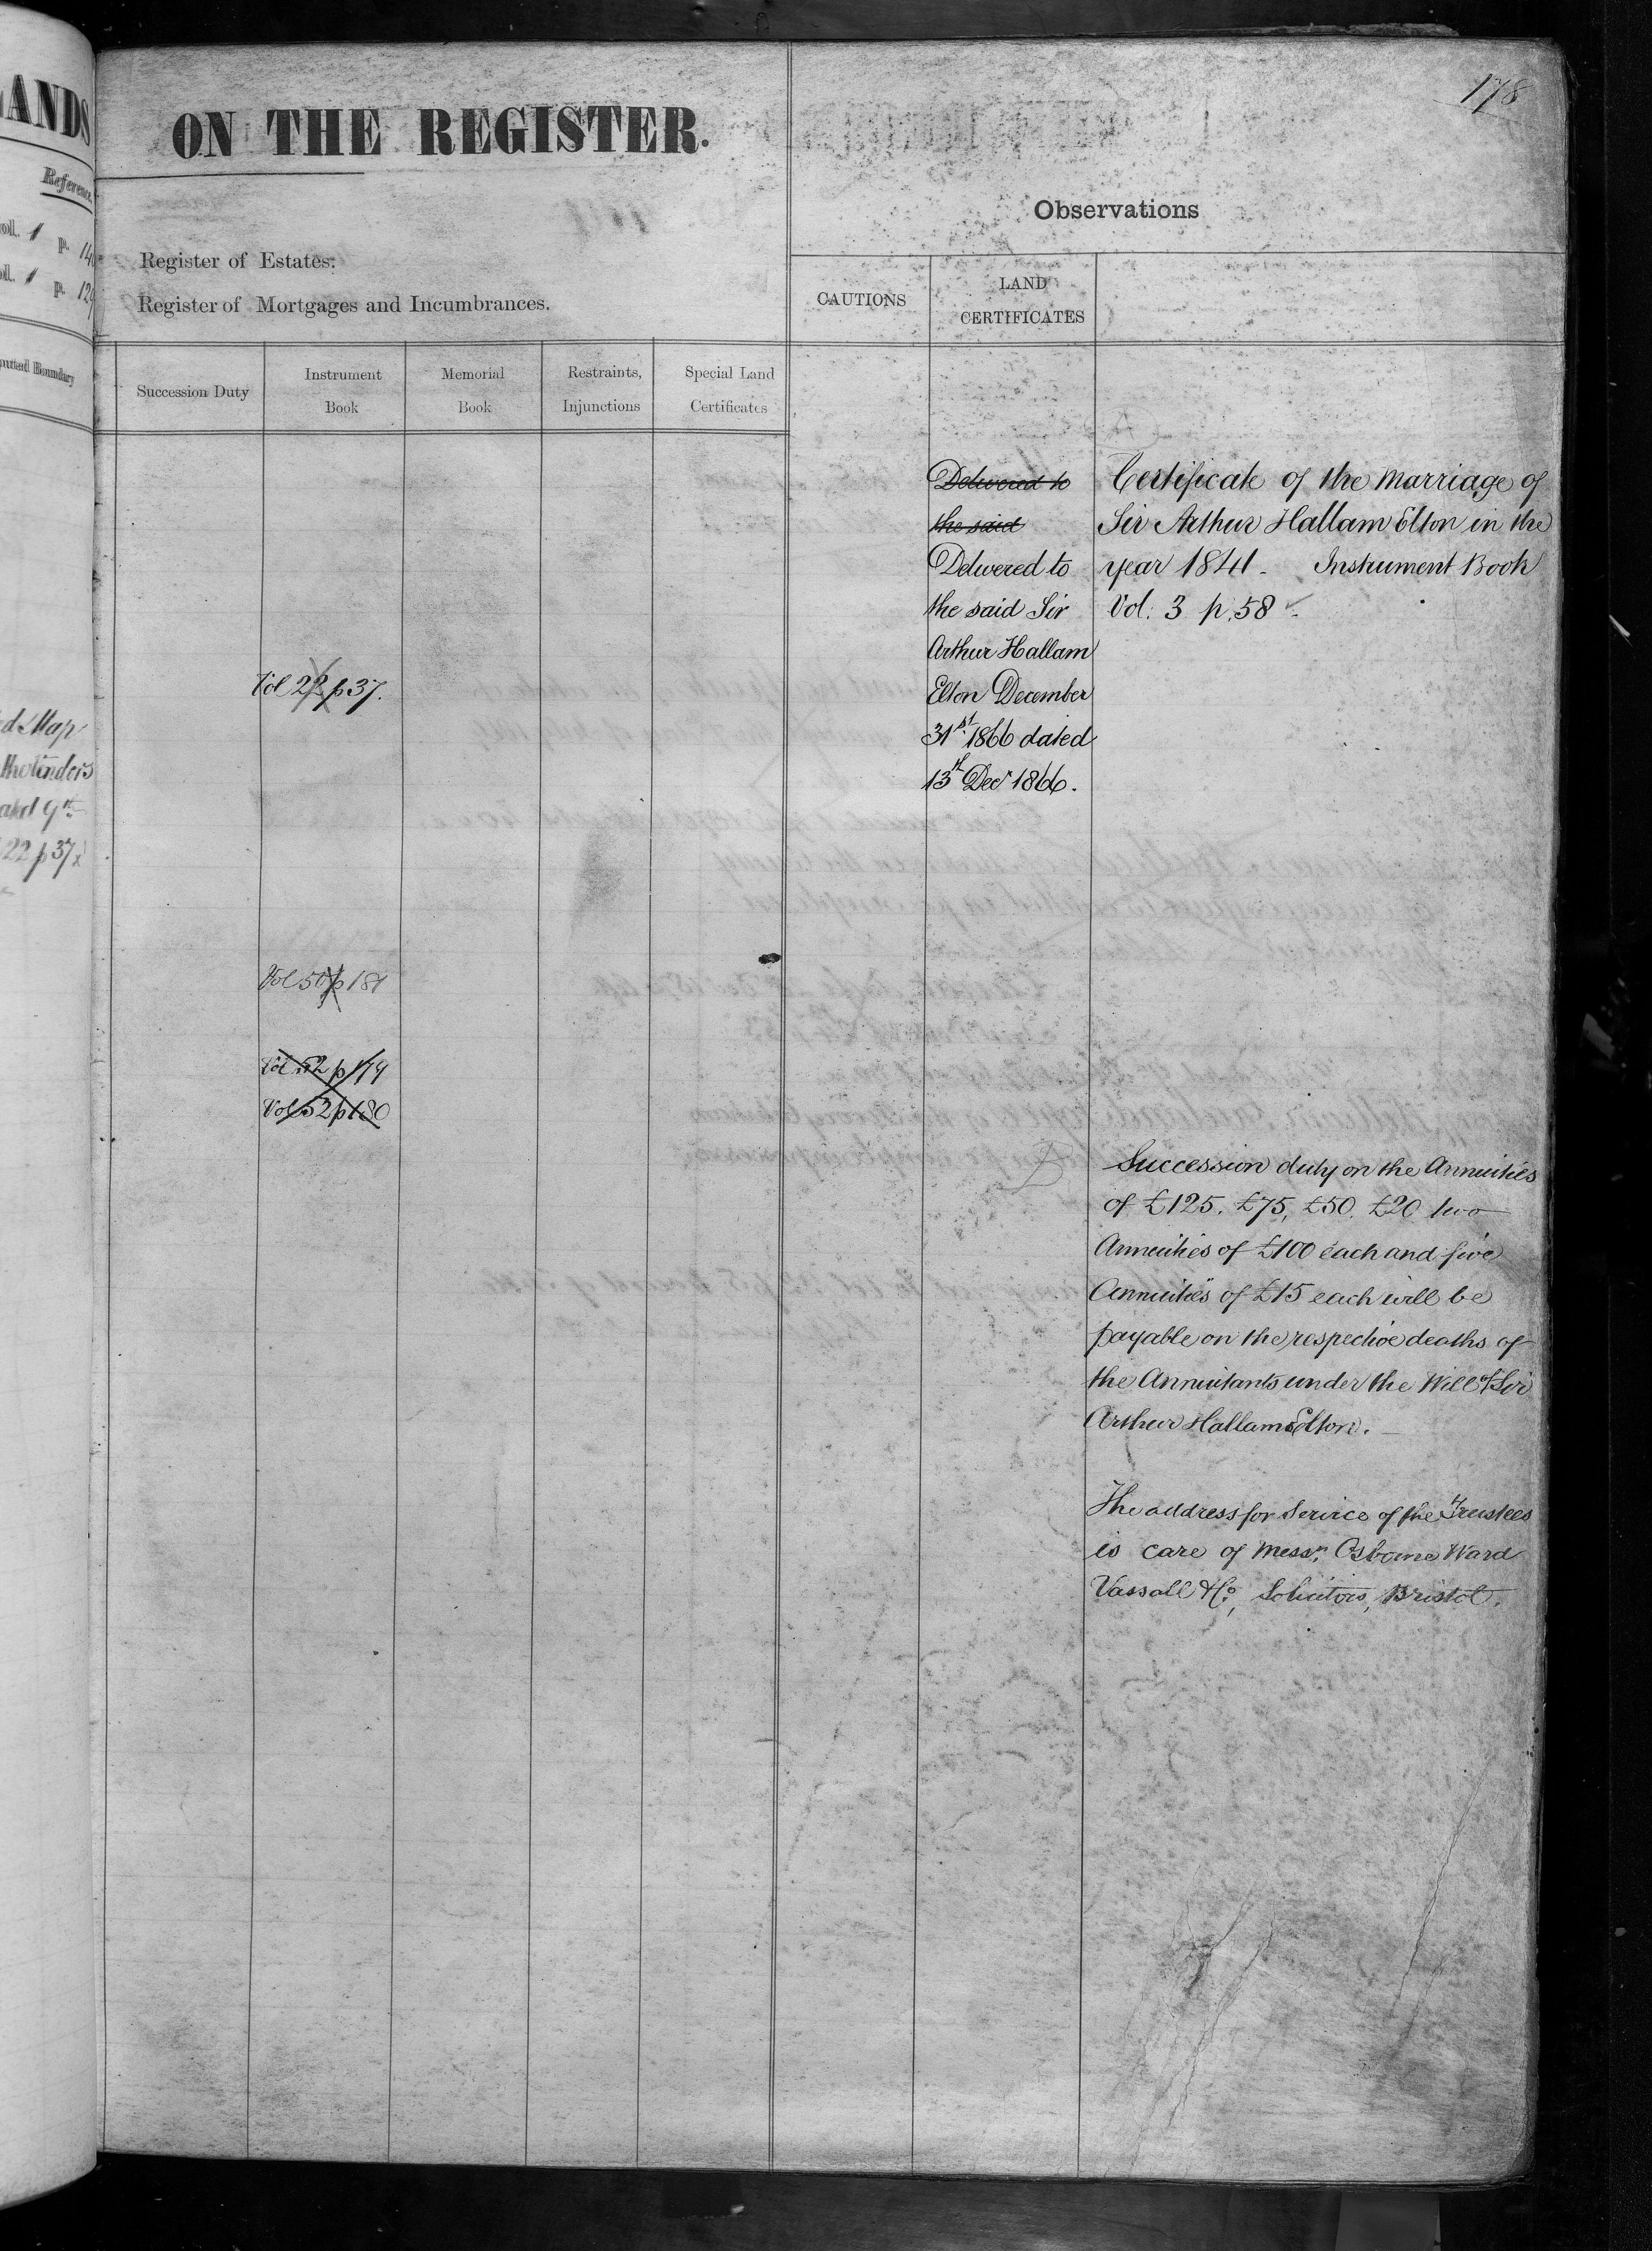 LANDS
Reference
vol. 1 p. 14
vol. 1 p. 129
puted Boundary
ed Map
and 9th
22 p 37
178
ON THE REGISTER.
Observations
Register of Estates.
Register of Mortgages and Incumbrances.
CAUTIONS
LAND
CERTIFICATES
Succession Duty
Instrument
Book
Memorial
Book
Restraints,
Injunctions
Special Land
Certificates
Vol 22 p 37.
Vol 50 p 181
Vol 52 p 179
Vol 52 p 180
Delivered to
the said
Delivered to
the said Sir
Arthur Hallam
Elton December
31st 1866 dated
13th Decr 1866.
Certificate of the Marriage of
Sir Arthur Hallam Elton in the
year 1841 - Instrument Book
Vol: 3 p. 58 -
Succession duty on the Annuities
of £125. £75, £50. £20 two
Annuities of £100 each and five
Annuities of £15 each will be
payable on the respective deaths of
the Annuitants under the Will of Sir
Arthur Hallam Elton. -
The address for Service of the Trustees
is care of Messrs. Osborne Ward
Vassall & Co., Solicitors, Bristol.